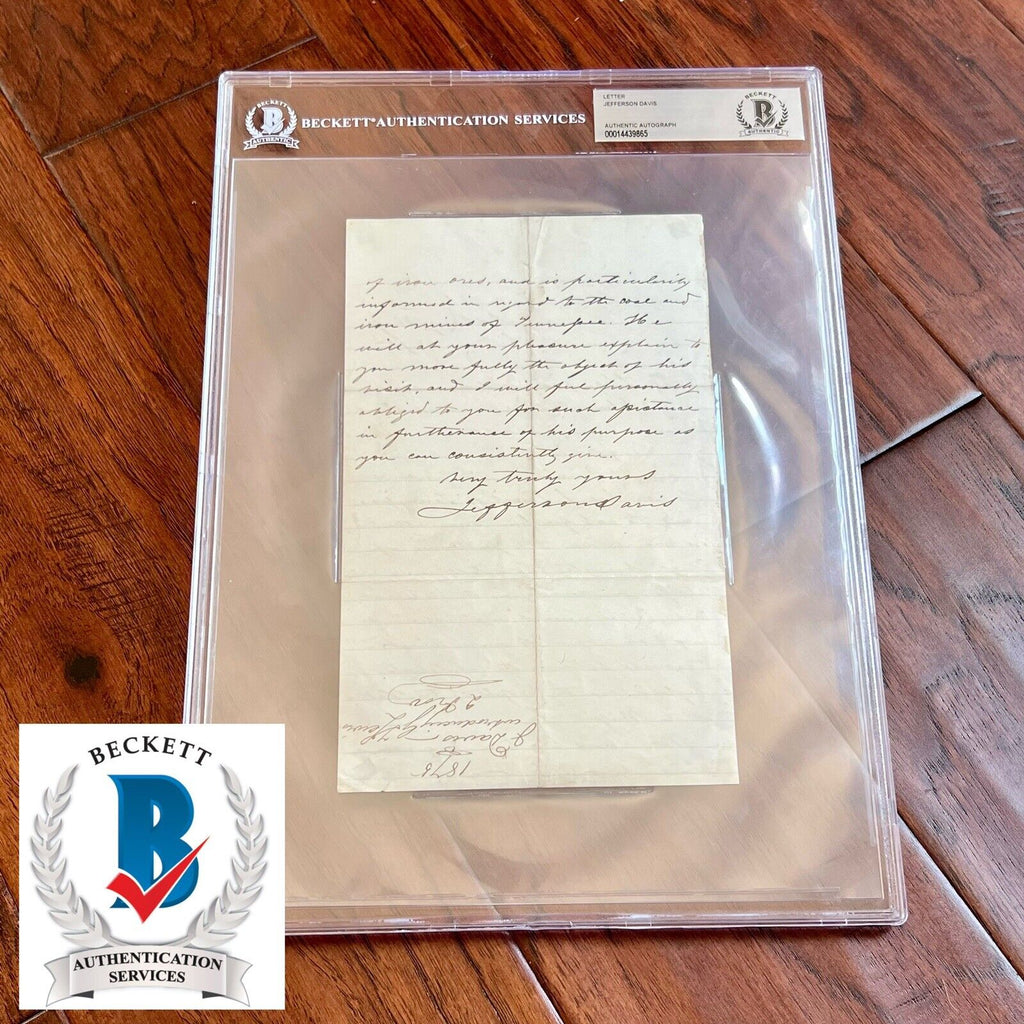 BECKETT
AUTHENTIC
BECKETT® AUTHENTICATION SERVICES
LETTER
JEFFERSON DAVIS
AUTHENTIC AUTOGRAPH
00014439865
BECKETT
B
AUTHENTIC
of iron ores, and is particularly
informed in regard to the coal and
iron mines of Tennessee. He
will at your pleasure explain to
you more fully the object of his
visit, and I will feel personally
obliged to you for such assistance
in furtherance of his purpose as
you can consistently give.
Very truly yours
Jefferson Davis
1875
J Davis
introducing
BECKETT
B
AUTHENTICATION
SERVICES